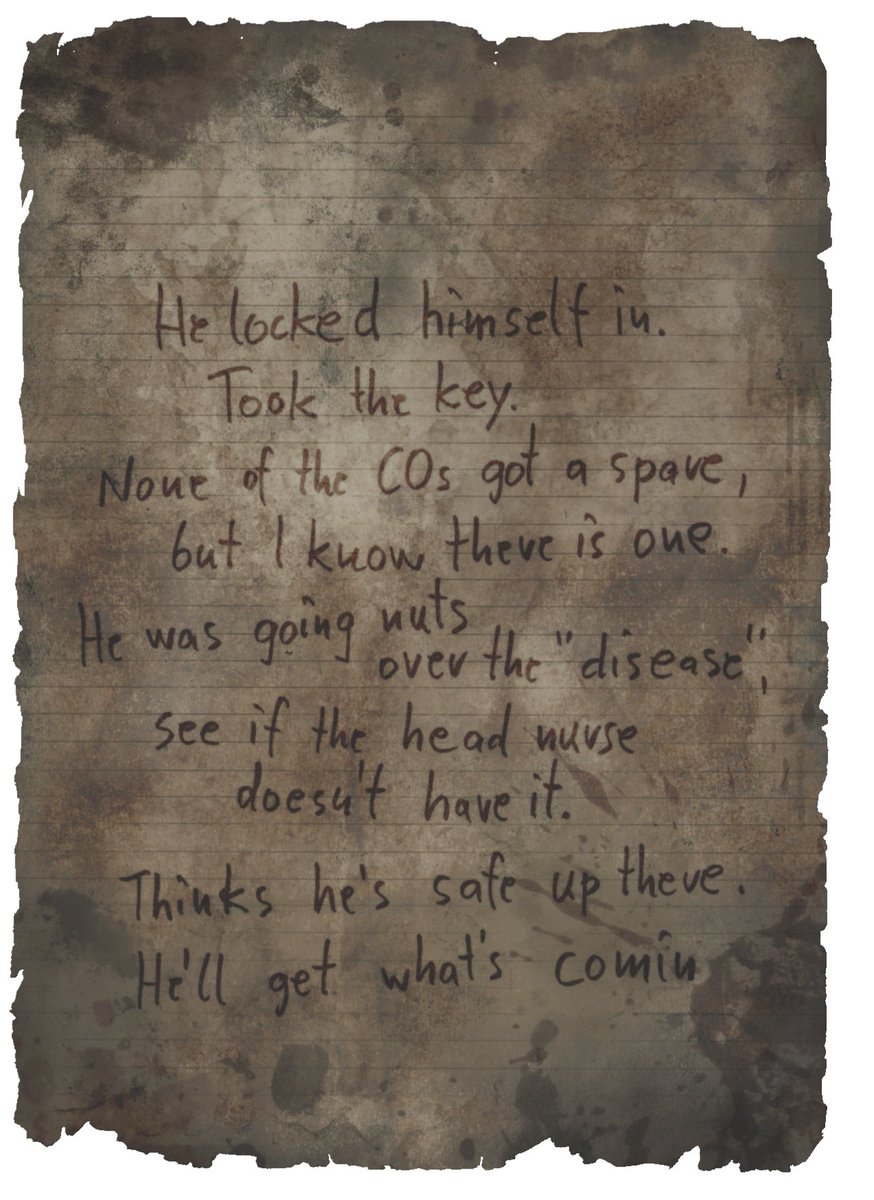 He locked himself in.
Took the key.
None of the COs got a spare,
but I know there is one.
He was going nuts
over the "disease",
see if the head nurse
doesn't have it.
Thinks he's safe up there.
He'll get what's comin